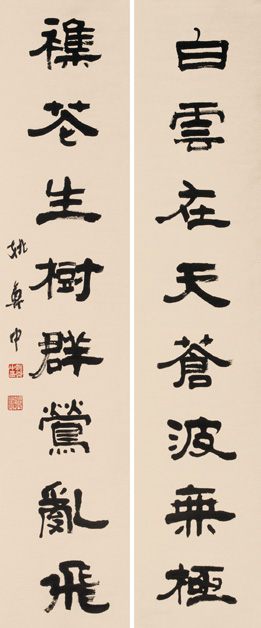 白雲在天蒼波無極
襍花生樹群鶯亂飛
姚奠中